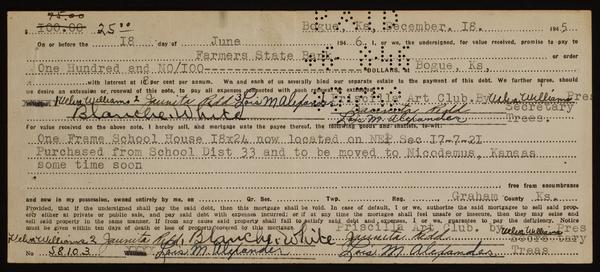 75.00
$ 100.00 25.00 Bogue, Ks, December. 18. 1945
On or before the 18 day of June 1946, I or we, the undersigned, for value received, promise to pay to
Farmers State Bank or order
One Hundred and No/100 DOLLARS, at Bogue, Ks.
with interest at 10 per cent per annum. We and each of us severally bind our separate estate to the payment of this debt. We further agree, should
we desire an extension, or renewal of this note, to pay all expenses connected with such renewal.
Helen Williams Juanita Redd Lois M. Alexander Art Club. By Helen Williams Pres
Blanche White Juanita Redd Secretary
Lois M. Alexander Treas.
For value received on the above note, I hereby sell, and mortgage unto the payee thereof, the following goods and chattels, to-wit:
One Frame School House 18x24 now located on NE¼ Sec 17-7-21
Purchased from School Dist 33 and to be moved to Nicodemus, Kansas
some time soon
free from encumbrance
and now in my possession, owned entirely by me, on Qr. Sec. Twp. Reg. Graham County Ks.
Provided, that if the undersigned shall pay the said debt, then this mortgage shall be void. In case of default, I or we, authorize the said mortgagee to sell said property
either at private or public sale, and pay said debt with expenses incurred; or if at any time the mortgagee shall feel unsafe or insecure, then they may seize and
sell said property in the same manner. If from any cause said property shall fail to satisfy said debt and expenses, I or we, guarantee to pay the deficiency. Notice
must be given within ten days of death or loss of property covered by this mortgage.
Priscilla Art Club. by Helen Williams Pres
Helen Williams Juanita Redd, Blanche White Juanita Redd Secretary
No. 5810.3 Lois M. Alexander Lois M. Alexander Treas.